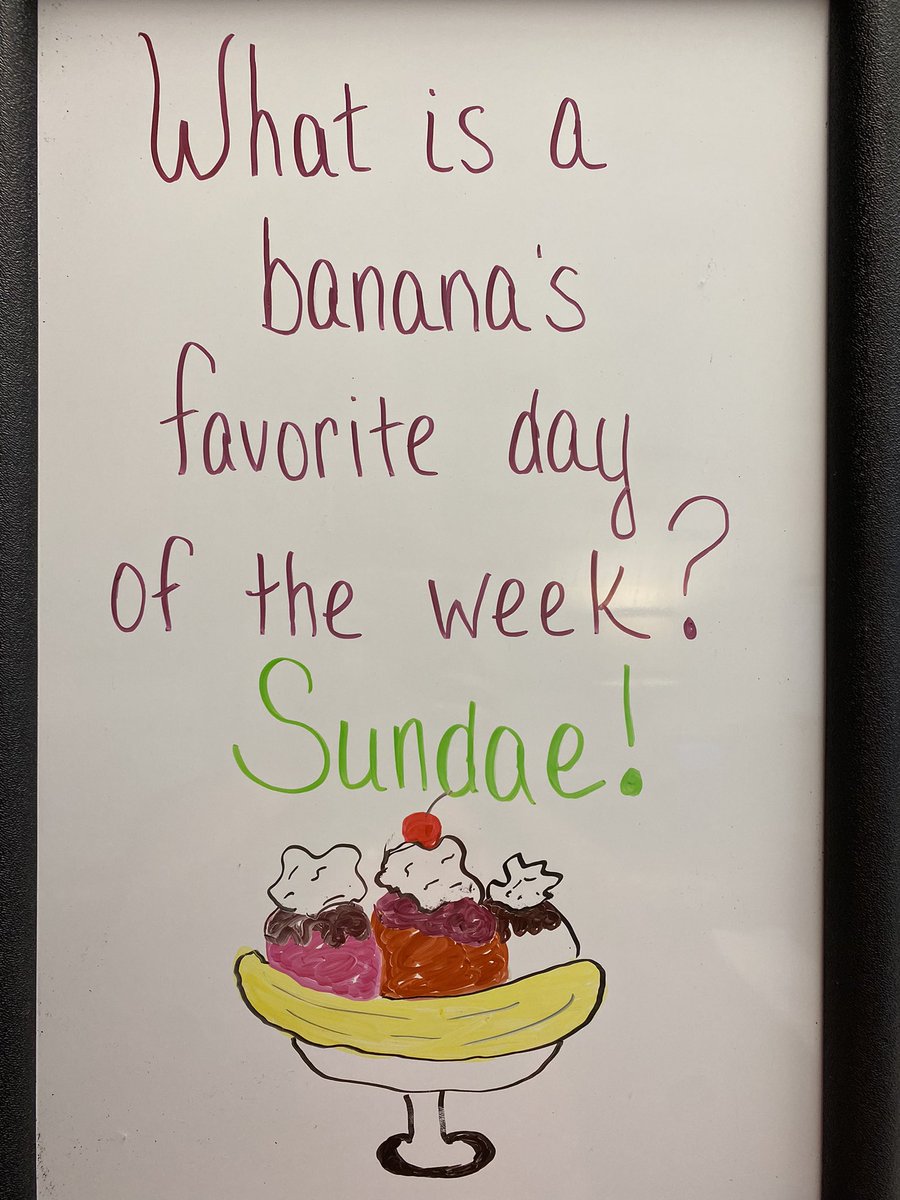 What is a
banana's
favorite day
of the week?
Sundae!